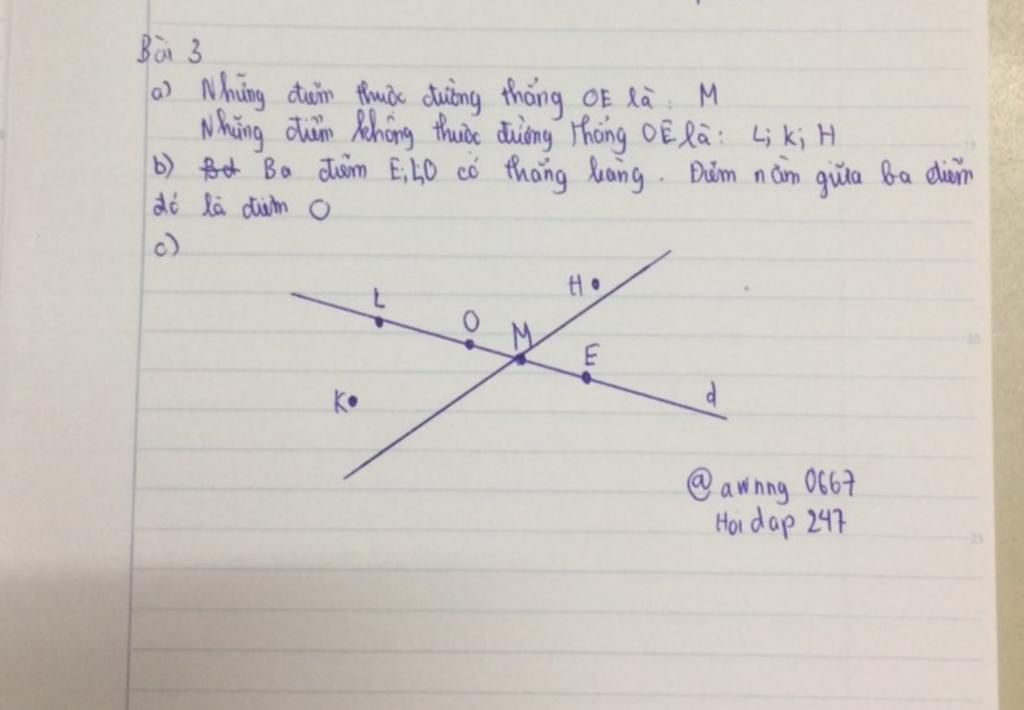 Bài 3
a) Những điểm thuộc đường thẳng OE là: M
Những điểm không thuộc đường thẳng OE là: L; K; H
b) Ba điểm E, L, O có thẳng hàng. Điểm nằm giữa ba điểm
đó là điểm O
c)
H
L
O
M
E
K
d
@awnng 0667
Hoi dap 247